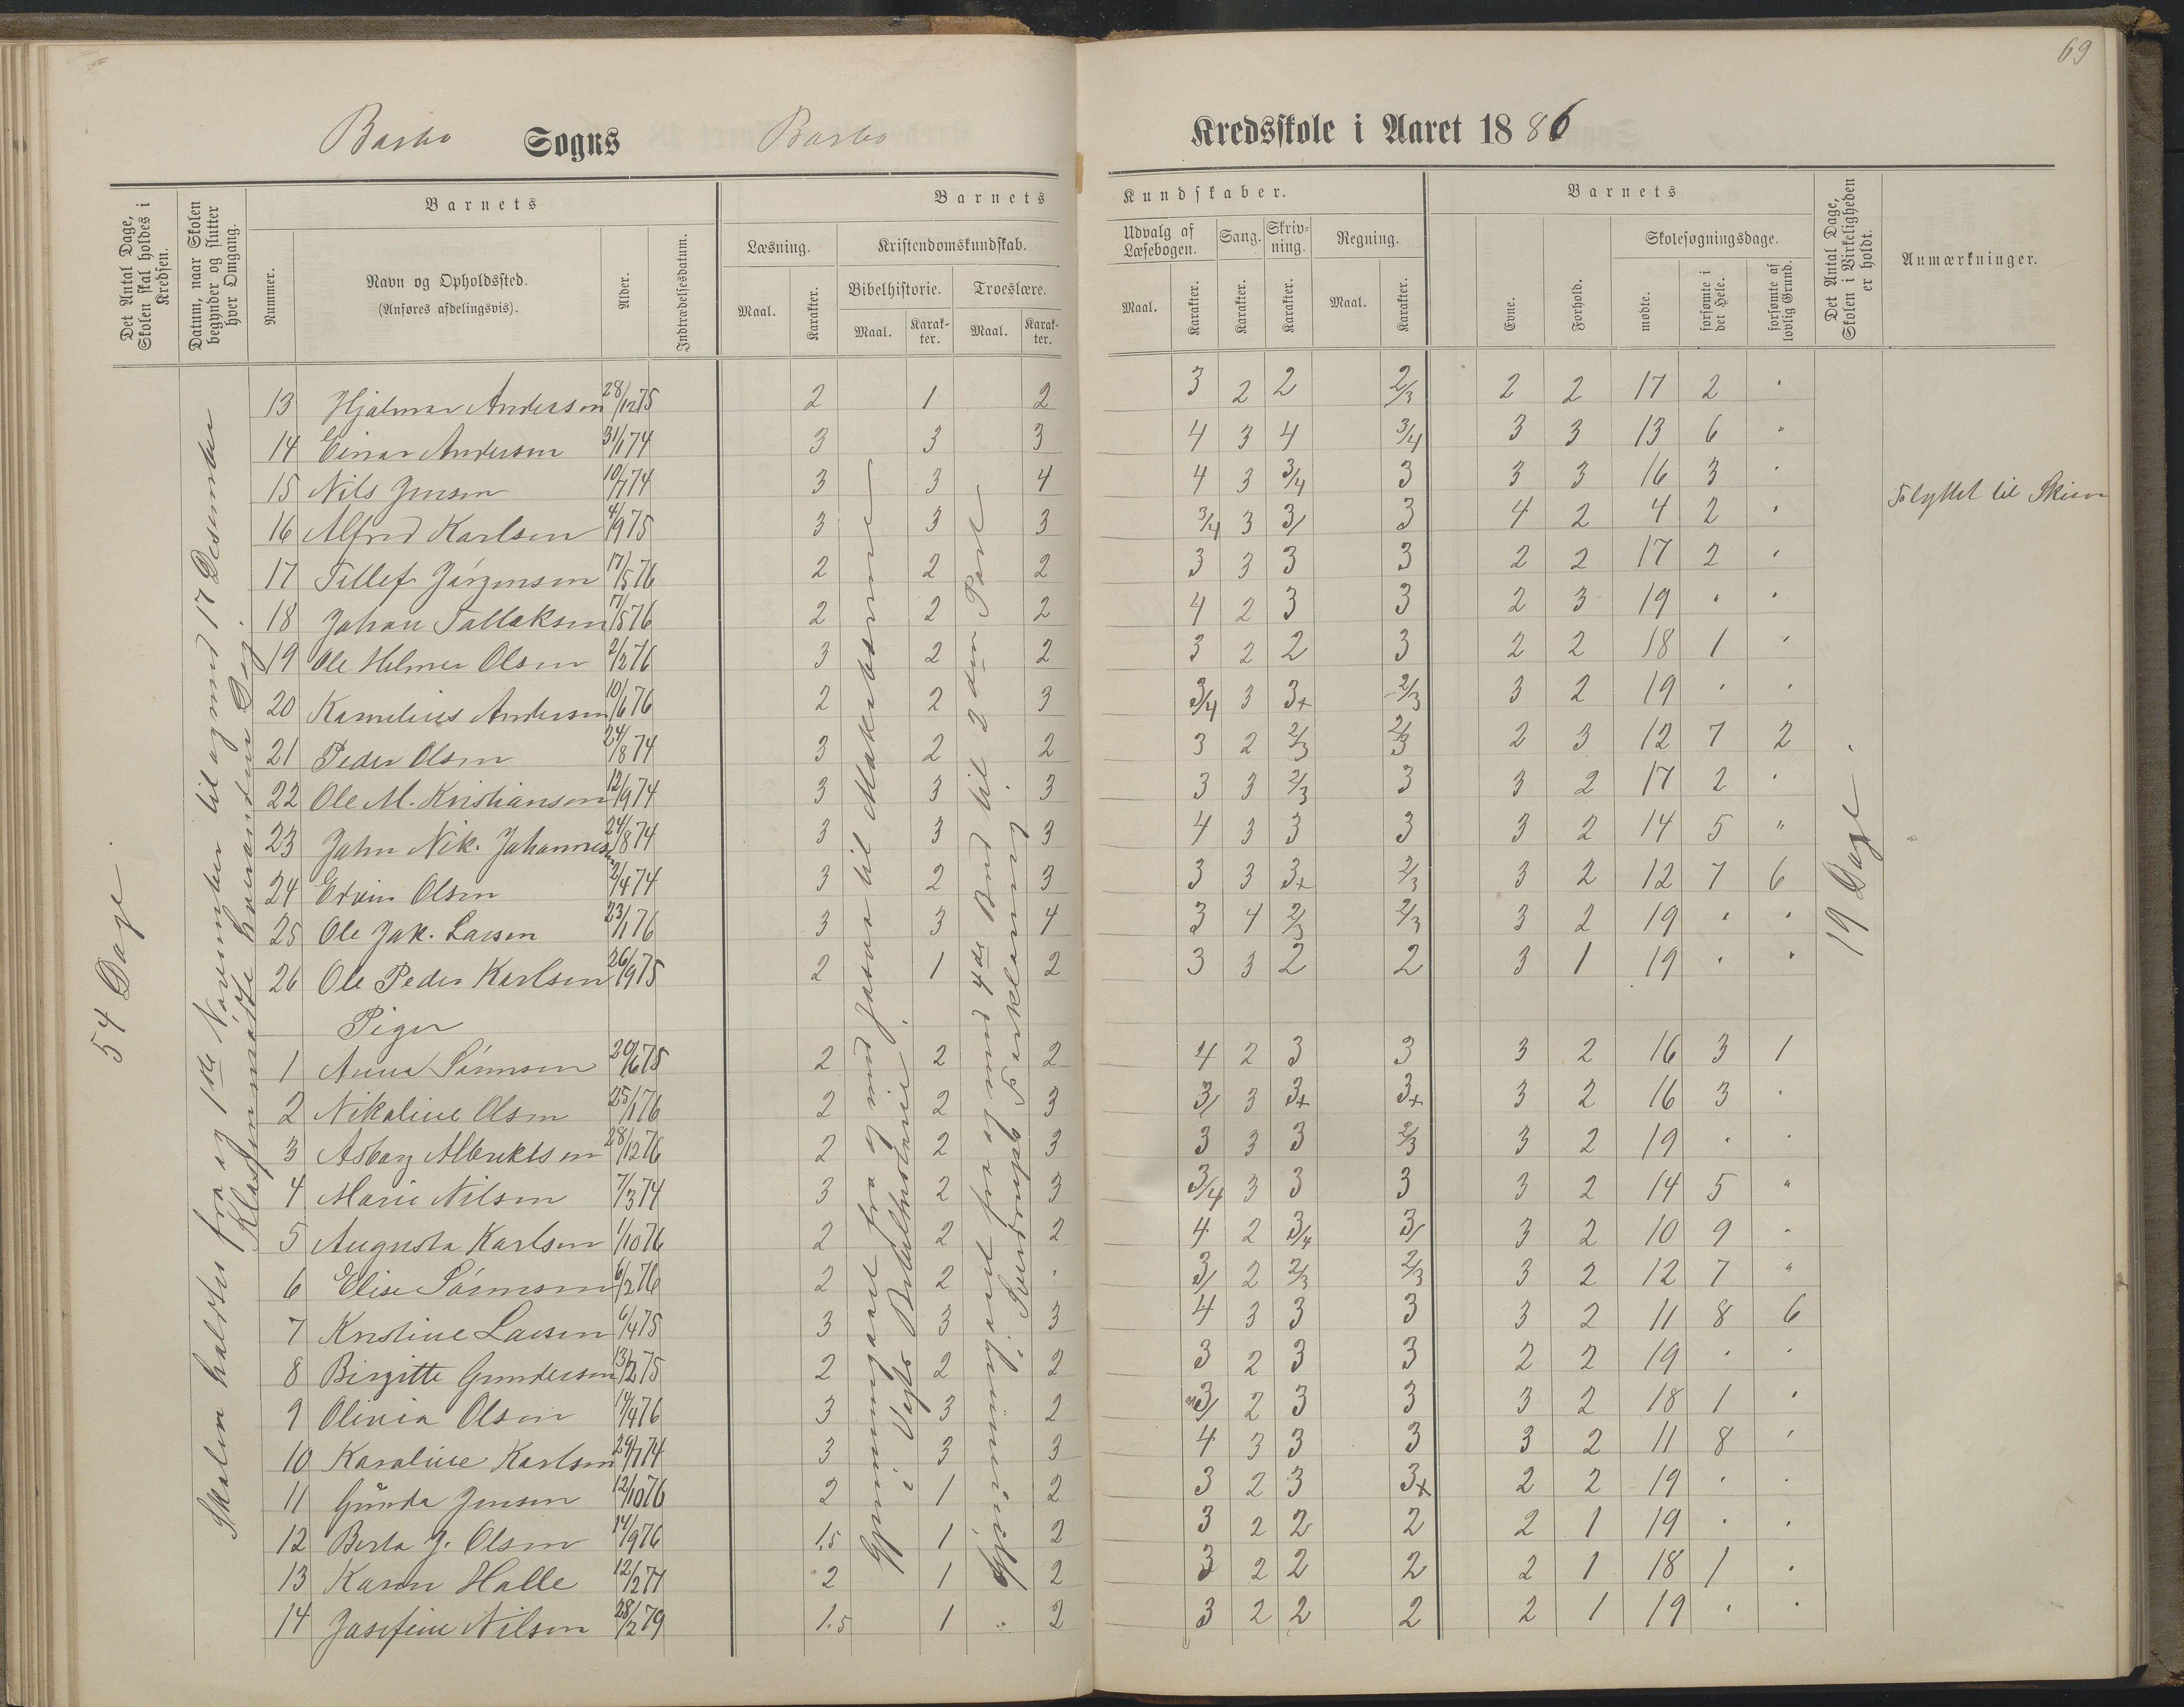 69
Barbo Sogns Barbo Kredsskole i Aaret 1886
Det Antal Dage, Skolen skal holdes i Kredsen.
Datum, naar Skolen begynder og slutter hver Omgang.
Barnets
Nummer.
Navn og Opholdssted.
(Anføres afdelingsvis).
Alder.
Indtrædelsesdatum.
Barnets Kundskaber.
Læsning. Kristendomskundskab. Udvalg af Læsebogen. Sang. Skrivning. Regning.
Bibelhistorie. Troeslære.
Maal. Karakter. Maal. Karakter. Maal. Karakter. Maal. Karakter. Karakter. Karakter. Maal. Karakter.
Barnets
Evne. Forhold. Skolesøgningsdage.
mødte. forsømte i det Hele. forsømte af lovlig Grund.
Det Antal Dage, Skolen i Virkeligheden er holdt.
Anmærkninger.
54 Dage
Skolen holdtes fra og 1ste November til og med 17 Desember
Klassen mødte hveranden Dag.
Gjennemgaaet fra og med Josva til Makabæerne
i Vogts Bibelhistorie.
Gjennemgaaet fra og med 4de Bud til 2den Part
i Sverdrups Forklaring
19 Dage
13 Hjalmar Andersen 28/12 75 2 1 2 3 2 2 2/3 2 2 17 2 "
14 Einar Andersen 31/1 74 3 3 3 4 3 4 3/4 3 3 13 6 "
15 Nils Jensen 10/7 74 3 3 4 4 3 3/4 3 3 3 16 3 "
16 Alfred Karlsen 4/9 75 3 3 3 3/4 3 3/ 3 4 2 4 2 " Flyttet til
17 Tellef Jørgensen 17/5 76 2 2 2 3 3 3 3 2 2 17 2 "
18 Johan Tallaksen 17/5 76 2 2 2 4 2 3 3 2 3 19 " "
19 Ole Hilmer Olsen 2/2 76 3 2 2 3 2 2 3 2 2 18 1 "
20 Kornelius Andersen 10/6 76 2 2 3 3/4 3 3+ 2/3 3 2 19 " "
21 Peder Olsen 24/8 74 3 2 2 3 2 2/3 2/3 2 3 12 7 2
22 Ole M. Kristiansen 12/9 74 3 3 3 3 3 2/3 3 3 2 17 2 "
23 John Nik. Johannesen 24/8 74 3 3 3 4 3 3 3 3 2 14 5 "
24 Edvin Olsen 2/4 74 3 2 3 3 3 3+ 2/3 3 2 12 7 6
25 Ole Jak. Larsen 23/1 76 3 3 4 3 4 2/3 2/3 3 2 19 " "
26 Ole Peder Karlsen 26/9 75 2 1 2 3 3 2 2 3 1 19 " "
Piger
1 Anna Sørensen 20/6 75 2 2 2 4 2 3 3 3 2 16 3 1
2 Nikoline Olsen 25/1 76 2 2 3 3/ 3 3+ 3+ 3 2 16 3 "
3 Asborg Albrektsen 28/12 76 2 2 3 3 3 3 2/3 3 2 19 " "
4 Marie Nilsen 7/3 74 3 2 3 3/4 3 3 3 3 2 14 5 "
5 Augusta Karlsen 1/10 76 2 2 2 4 2 3/4 3/ 3 2 10 9 "
6 Elise Sørensen 6/2 76 2 2 " 3/ 2 2/3 2/3 3 2 12 7 "
7 Kristine Larsen 6/4 75 3 3 3 4 3 3 3 3 2 11 8 6
8 Birgitte Gundersen 13/2 75 2 2 2 3 2 3 3 2 2 19 " "
9 Olivia Olsen 11/4 76 3 3 2 3/ 2 3 3 3 2 18 1 "
10 Karoline Karlsen 29/1 74 3 3 3 4 3 3 3 3 2 11 8 "
11 Gunda Jensen 12/10 76 2 1 2 3 2 3 3+ 2 2 19 " "
12 Berta J. Olsen 14/9 76 1.5 1 2 3 2 2 2 2 1 19 " "
13 Karen Halle 12/2 77 2 1 2 3 2 2 2 2 1 18 1 "
14 Josefine Nilsen 28/2 79 1.5 1 2 3 2 2 2 2 1 19 " "